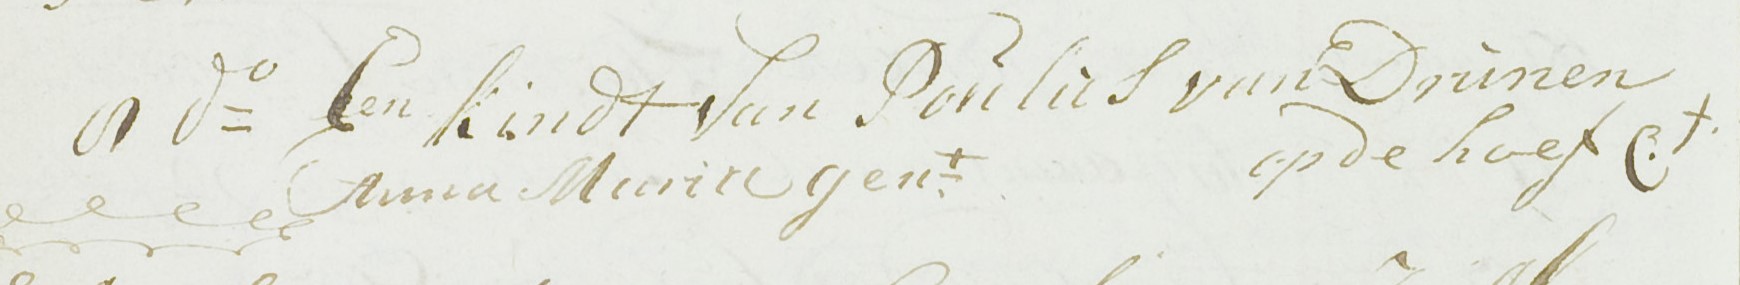 a do Een kindt van Poulus van Drunen
op de hoef C.t.
Anna Maria gent.